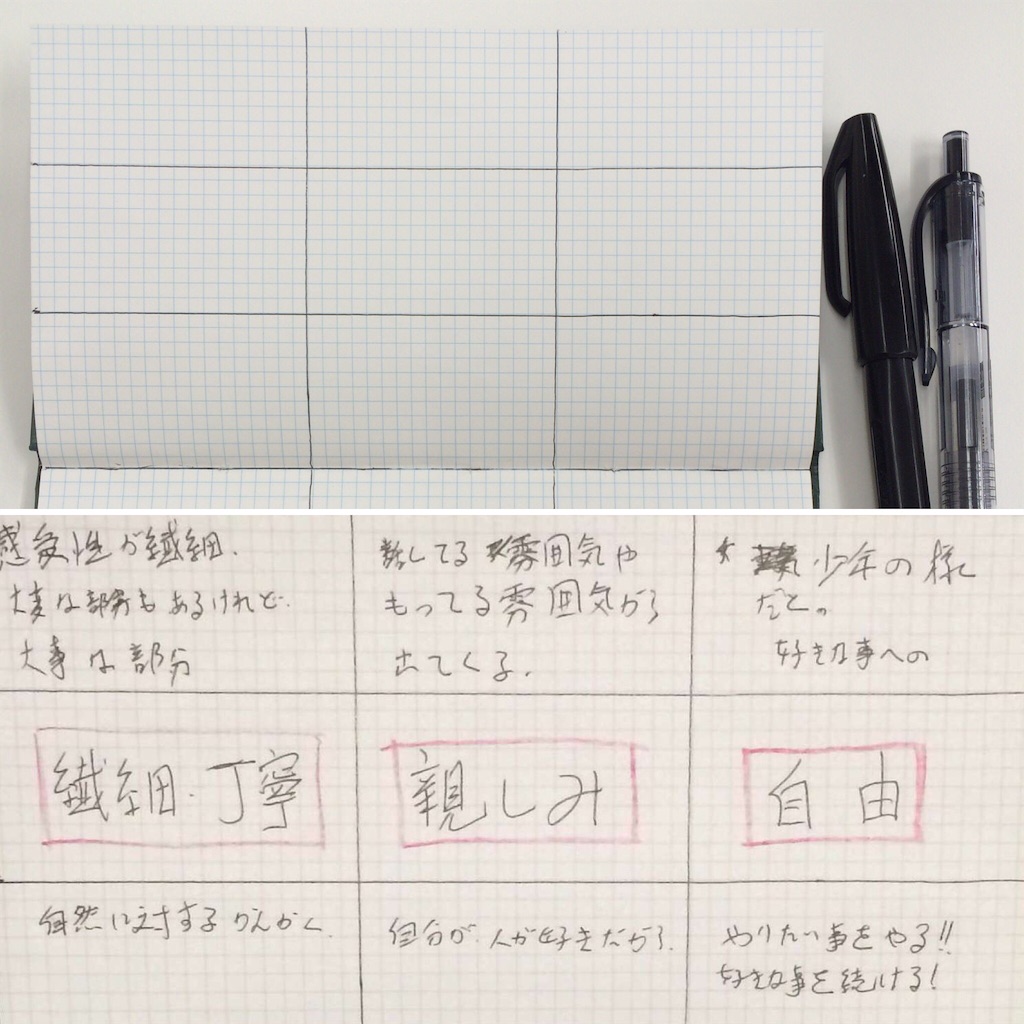 感受性が繊細.
大事な部分もあるけれど.
大事な部分
話してる雰囲気や
もってる雰囲気から
出てくる.
少年の様
だと。
好きな事への
繊細・丁寧
親しみ
自由
自然に対するかんかく.
自分が人が好きだから.
やりたい事をやる!!
好きな事を続ける!